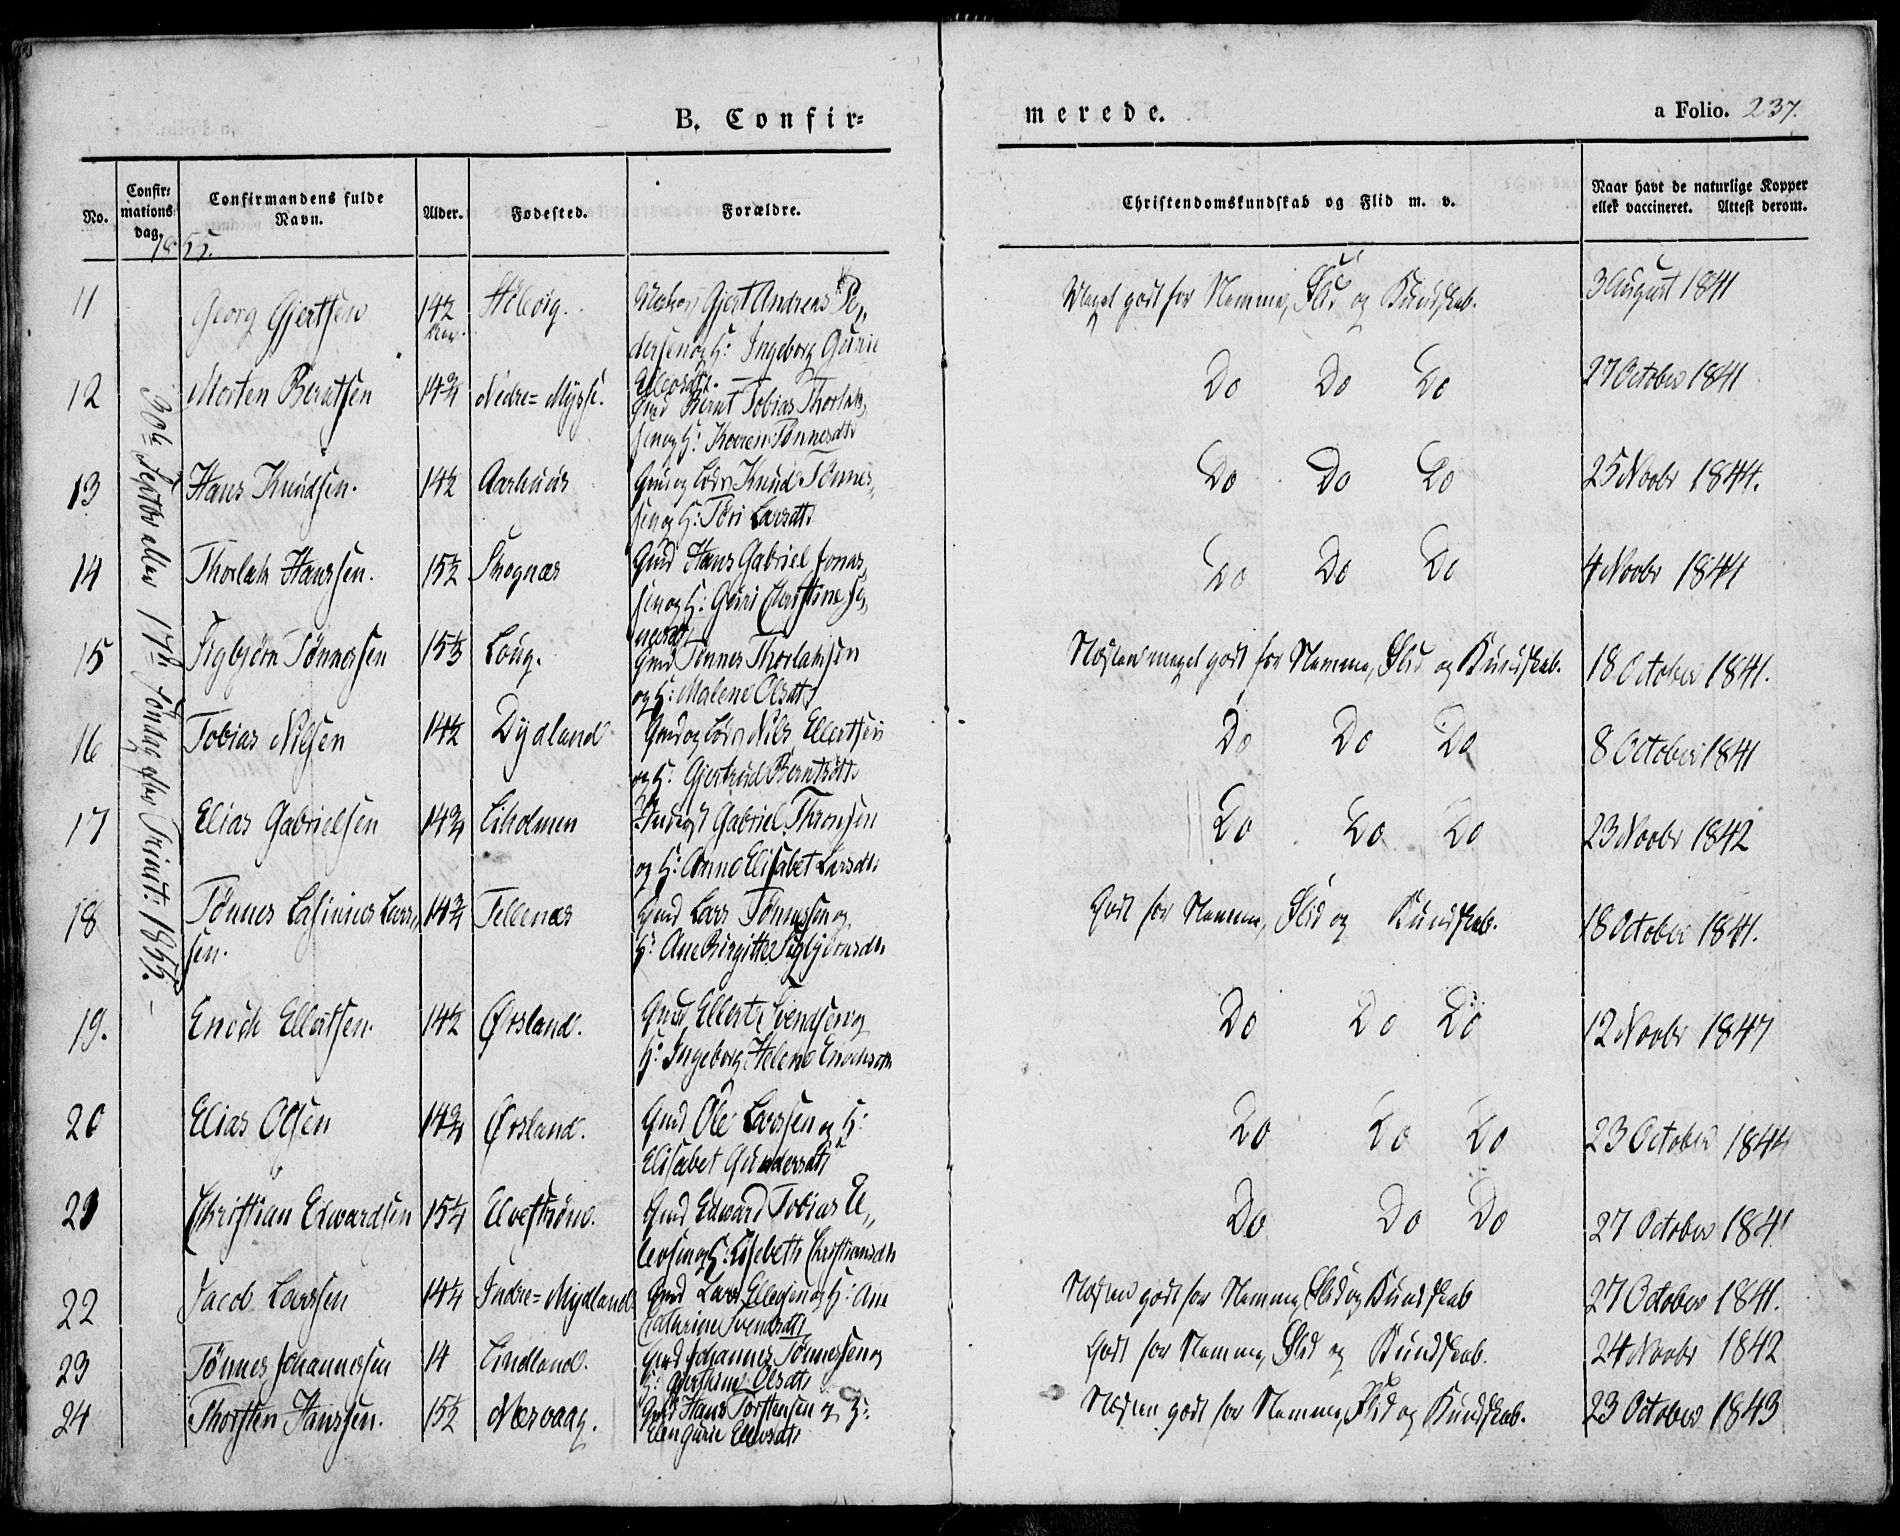 B. Confir=
merede.
a Folio. 237.
No.
Confir=
mations=
dag.
Confirmandens fulde
Navn.
Alder.
Fødested.
Forældre.
Christendomskundskab og Flid m. v.
Naar havt de naturlige Kopper
eller vaccineret. Attest derom.
1855.
30te Septbr eller 17de Søndag efter Trinit: 1855.
11 Georg Gjertsen 14½ Helvig. Gjert Andreas Pe,,
dersen og H: Ingeborg Gurie
Meget godt for Nemme, Flid og Kundskab. 3 August 1841
12 Morten Berntsen 14¾ Nedre=Mysse. Gmd Bernt Tobias Thorlak,,
sen og H: Karen Tønnesdtr
Do Do Do 27 October 1841
13 Hans Knudsen. 14½ Aarhuus Knud Tønnes,,
sen og H: Tøri Larsdtr
Do Do Do 25 Novbr 1844.
14 Thorlak Hanssen. 15½ Skognæs Gmd Hans Gabriel Jonas,,
sen og H: Guri Christine
Do Do Do 4 Novbr 1841
15 Sigbjørn Tønnessen 15⅓ Loug. Gmd Tønnes Thorlaksen
og H: Malene Olsdtr
Næsten meget godt for Nemme, Flid og Kundskab. 18 October 1841.
16 Tobias Nilsen 14½ Dydland Nils Ellertsen
og H: Gjertrud Berntsdtr
Do Do Do 8 October 1841
17 Elias Gabrielsen 14¾ Liholmen Gabriel Thronsen
og H: Anne Elisabet Larsdtr
Do Do Do 23 Novbr 1842
18 Tønnes Lars,, 14¾ Tellenæs Gmd Lars Tønnessen og
sen. H: Ane Birgitte Sigbjørnsdtr
Godt for Nemme, Flid og Kundskab. 18 October 1841.
19. Enoch Ellertsen. 14½ Ørsland. Gmd Ellert Svendsen og
H: Ingeborg Helene Enochsdtr
Do Do Do 12 Novbr 1847
20 Elias Olsen 14¾ Ørsland. Gmd Ole Larssen og H:
Elisabet Gundersdtr
Do Do Do 23 October 1844
21 Christian Edwardsen 15¼ Elvestrøm. Gmd Edward Tobias El,,
levsen og H: Lisebeth Christiansdtr
Do Do Do 27 October 1841
22 Jacob Larssen 14¼ Indre=Mydland Gmd Lars og H: Ane
Cathrine Svendsdtr
Næsten godt for Nemme, Flid og Kundskab 27 October 1841.
23 Tønnes Johannessen 14 Lindland. Gmd Johannes Tønnessen og
H: Olsdtr
Godt for Nemme, Flid og Kundskab. 24 Novbr 1842
24 Thorsten Hanssen. 15½ Nærvaag. Gmd Hans Torstensen og H:
Elen Gurie
Næsten godt for Nemme, Flid og Kundskab. 23 October 1843